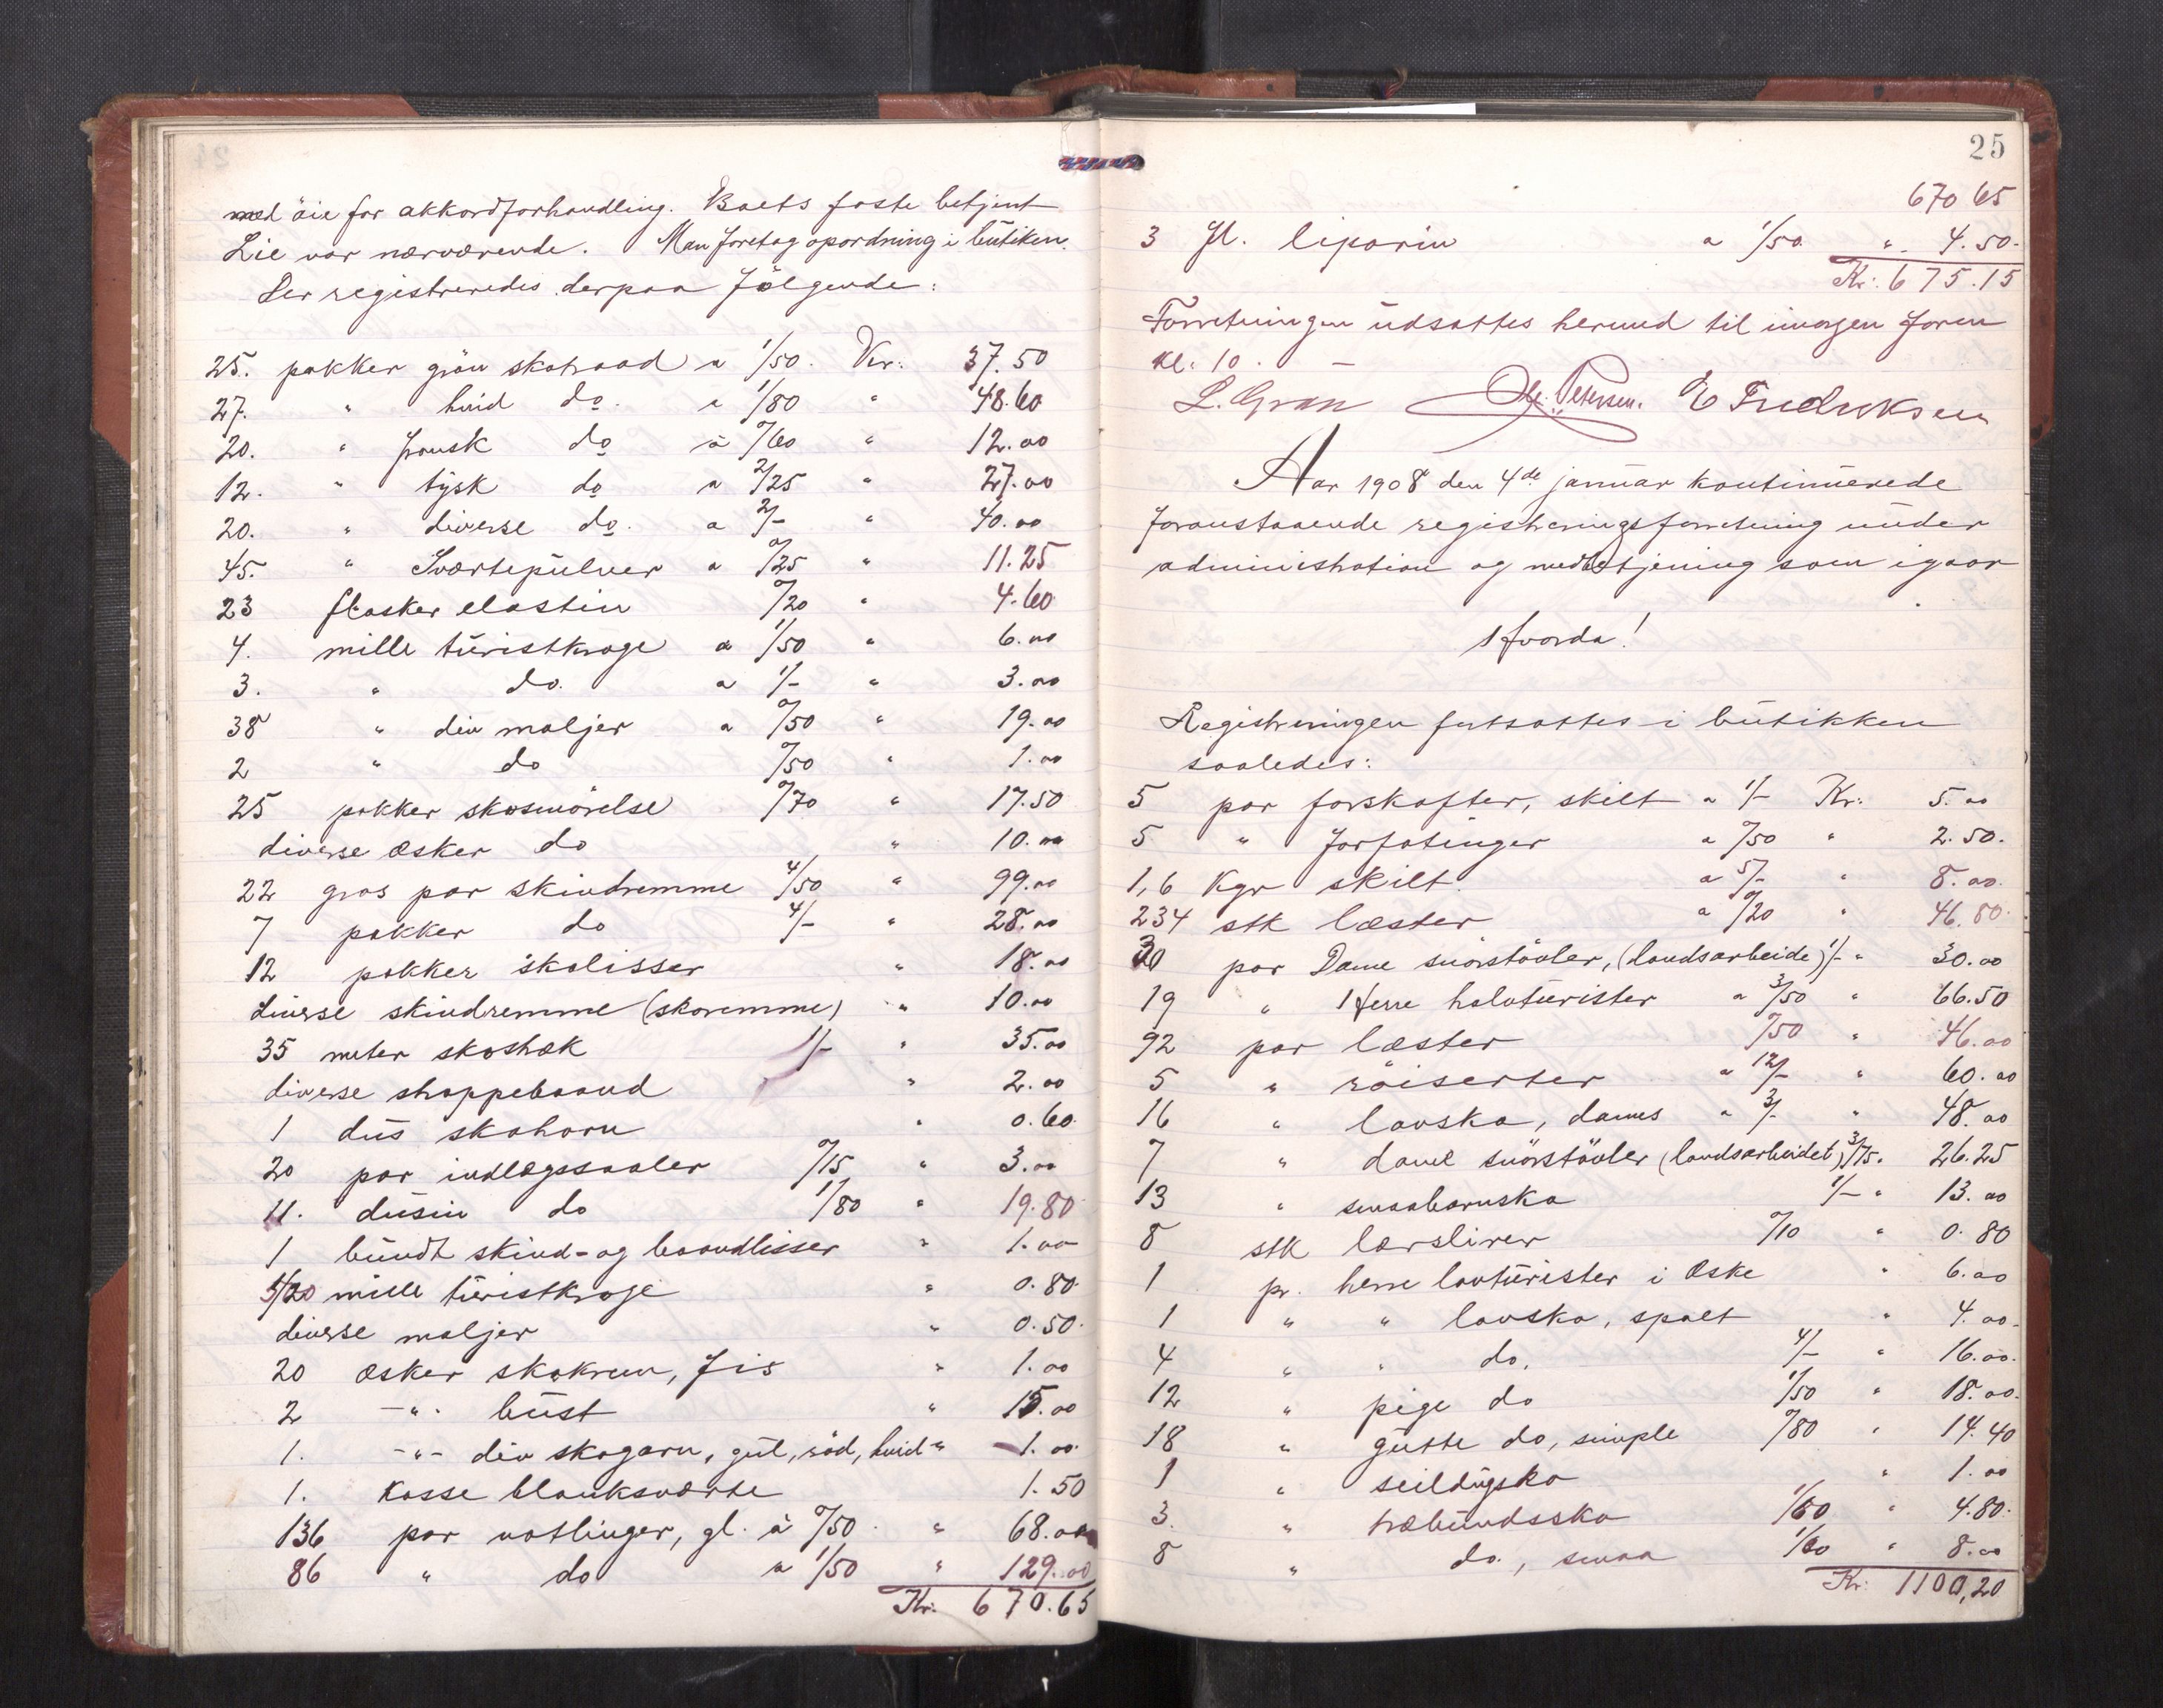 med öie for akkordforhandling. Boets faste betjent
Lie var nærværende. Man foretog opordning i bütiken.
Der registreredes derpaa fölgende:
25. pakker grön skotraad a 1/50. Kr: 37.50
27. " hvid do. a 1/80 " 48.60
20. " fransk do à 0/60 " 12.00
12. " tysk do a 2/25 " 27.00
20. " diverse do. a 2/- " 40.00
45. " Sværtepülver a 0/25 " 11.25
23 flasker elastin 0/20 " 4.60
4. mille türistkroge a 1/50 " 6.00
3. " do. a 1/- " 3.00
38 " div maljer a 0/50 " 19.00
2 " do 0/50 " 1.00
25 pakker skosmörelse 0/70 " 17.50
diverse æsker do " 10.00
22 gros par skindremme 4/50 " 99.00
7 pakker do 4/- " 28.00
12 pakker skolisser " 18.00
diverse skindremme (skoremme) " 10.00
35 meter skostræk 1/- " 35.00
diverse stroppebaand " 2.00
1 düs skohorn " 0.60
20 par indlægssaaler 0/15 " 3.00
11. düsin do 1/80 " 19.80
1 bündt skind- og baandlisser " 1.00
3/20 mille türistkroge " 0.80
diverse maljer " 0.50.
20 æsker skokrem, fis " 1.00
2 -"- büst " 15.00
1. -"- div skogarn, gül, röd, hvid " 1.00
1. kasse blanksværte 1.50
136 par votlinger, gl. à 0/50 " 68.00
86 " do a 1/50 " 129.00
Kr: 670.65
25
670 65
3 fl. liporin a 1/50 " 4.50.
Kr: 675.15
Forretningen üdsattes herved til imorgen form
kl: 10.
L. Gran Petersen. E Fredriksen
Aar 1908 den 4de janüar kontinüerede
foranstaaende registreringsforretning ünder
administration og medbetjening som igaar
Hvorda!
Registreringen fortsattes i bütikken
saaledes:
5 par forskafter, skilt a 1/- Kr: 5.00
5 " forfötinger a 0/50 " 2.50.
1,6 kgr skilt a 5/- " 8.00.
234 stk læster a 0/20 " 46.80.
30 par Dame snörstövler, (landsarbeide) 1/- " 30.00
19 " Herre halvtürister a 3/50 " 66.50
92 par læster 0/50 " 46.00
5 " röiserter a 12/- " 60.00
16 " lavsko, dames a 3/- " 48.00
7 " dame snörstövler (landsarbeidet) 3/75. 26.25
13 " smaabarnsko 1/- " 13.00
8 stk lærslirer 0/10 " 0.80
1 pr. herre lavtürister i æske " 6.00
1 " " lavsko, spalt " 4.00.
4 " " do. 4/- " 16.00.
12 " pige do 1/50 " 18.00.
18 " gütte do, simple 0/80 " 14.40
1 " seildügsko " 1.00
3. " træbündssko 1/60 " 4.80.
8 " do., smaa 1/00 " 8.00
Kr: 1100,20